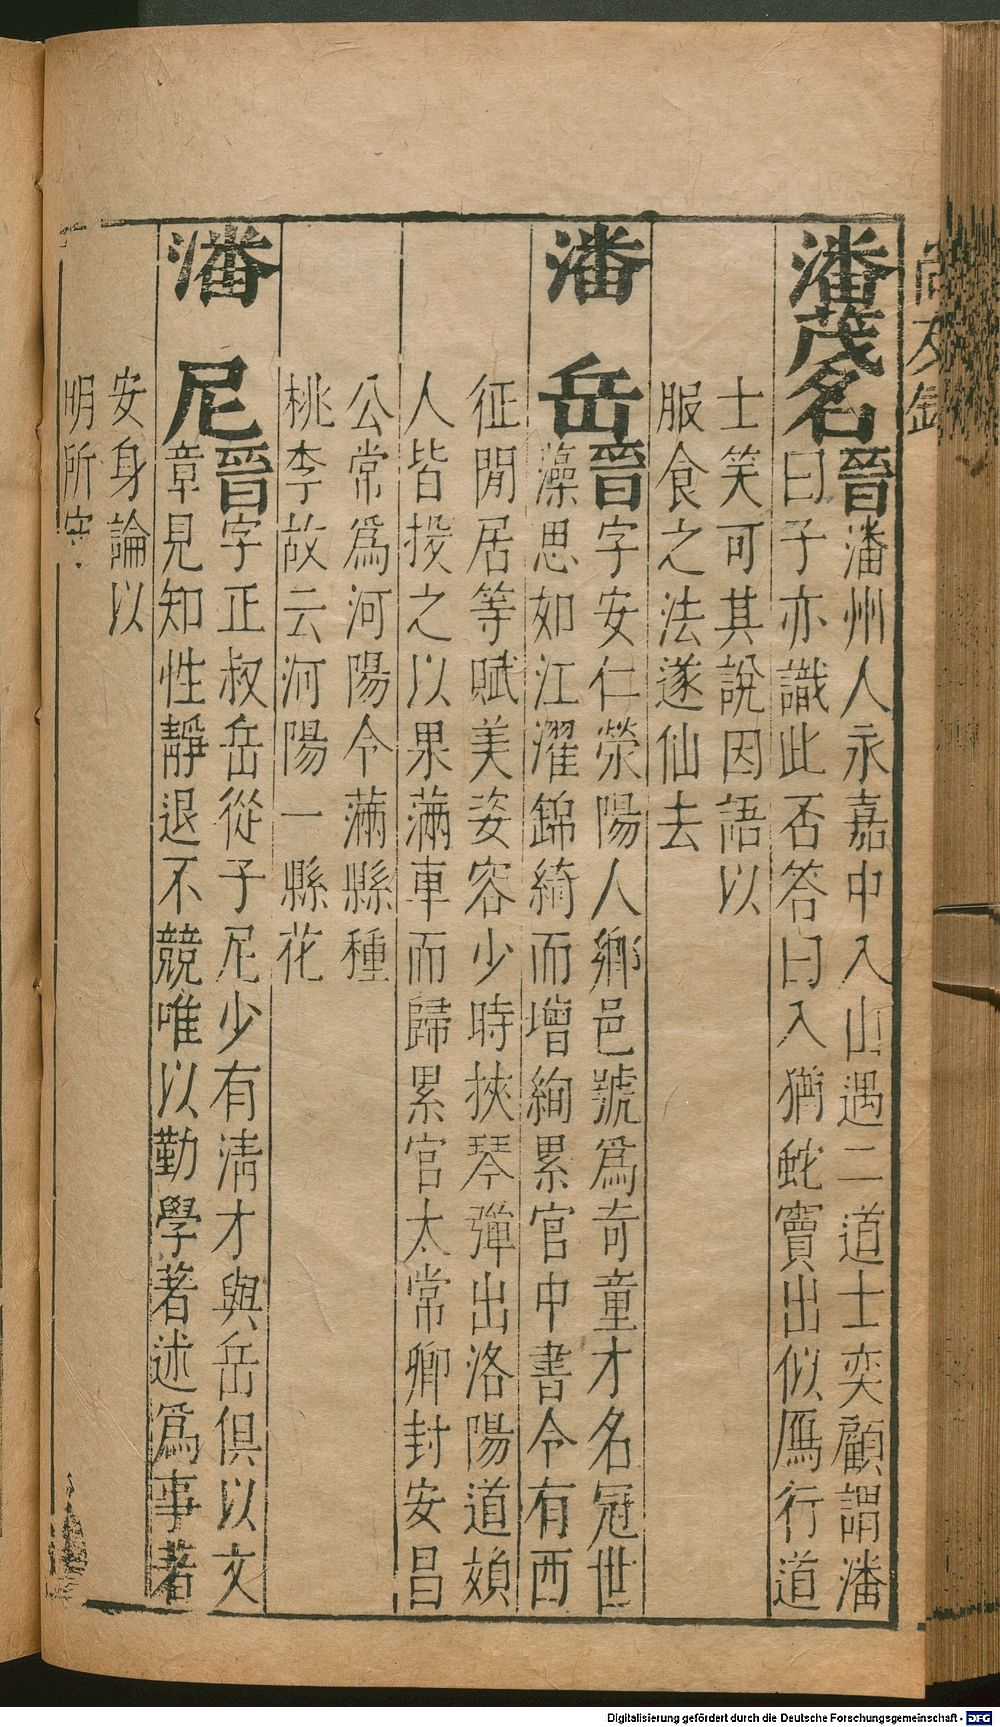 潘茂名
晉潘州人永嘉中入山遇二道士奕顧謂潘
曰子亦識此否答曰入猶蛇竇出似鴈行道
士笑可其說因語以
服食之法遂仙去
潘岳
晉字安仁滎陽人鄉邑號爲奇童才名冠世
藻思如江濯錦綺而增絢累官中書令有西
征閒居等賦美姿容少時挾琴彈出洛陽道
人皆投之以果滿車而歸累官太常卿封安昌
公常爲河陽令滿縣種
桃李故云河陽一縣花
潘尼
晉字正叔岳從子尼少有清才與岳俱以文
章見知性靜退不競唯以勤學著述爲事著
安身論以
明所守
Digitalisierung gefördert durch die Deutsche Forschungsgemeinschaft - DFG